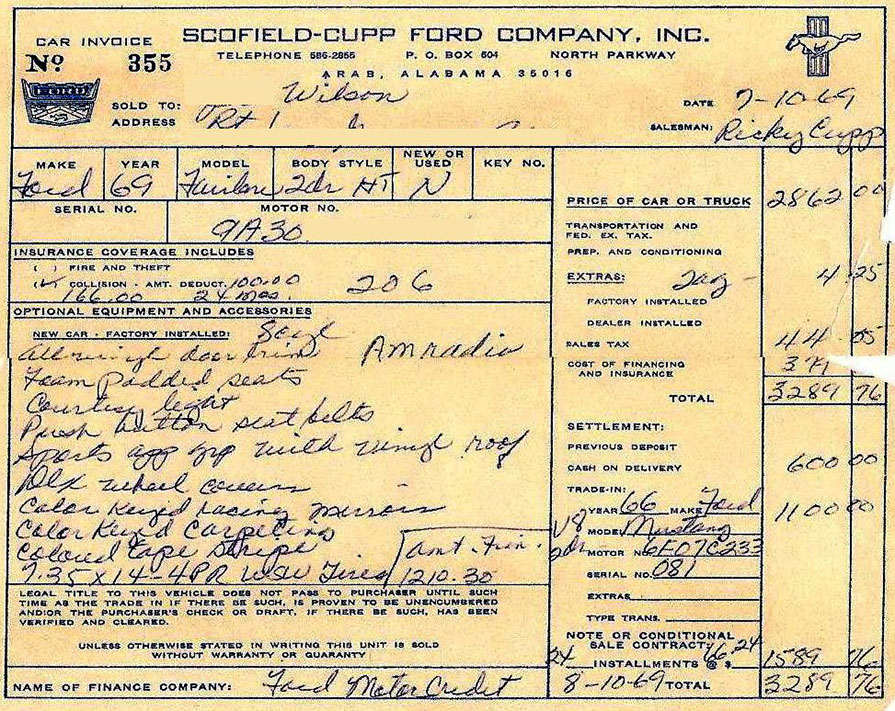 SCOFIELD-CUPP FORD COMPANY, INC.
CAR INVOICE
TELEPHONE 586-2855 P. O. BOX 604 NORTH PARKWAY
No 355
ARAB, ALABAMA 35016
FORD
SOLD TO: Wilson
DATE 7-10-69
ADDRESS Rt 1
SALESMAN: Ricky Cupp
MAKE YEAR MODEL BODY STYLE NEW OR USED KEY NO.
Ford 69 Fairlane 2dr HT N
SERIAL NO. MOTOR NO.
9A30
INSURANCE COVERAGE INCLUDES
( ) FIRE AND THEFT
( ) COLLISION - AMT. DEDUCT. 100.00 206
166.00 24 mos.
OPTIONAL EQUIPMENT AND ACCESSORIES
NEW CAR - FACTORY INSTALLED: 6cyl
All vinyl door trim AM radio
Foam padded seats
Courtesy light
Push button seat belts
Sports app grp with vinyl roof
Dlx wheel covers
Color Keyed racing mirrors
Color Keyed Carpeting
Colored tape stripe
7.35 X 14-4PR WSW Tires
Amt. Fin.
1210.30
LEGAL TITLE TO THIS VEHICLE DOES NOT PASS TO PURCHASER UNTIL SUCH
TIME AS THE TRADE IN IF THERE BE SUCH, IS PROVEN TO BE UNENCUMBERED
AND/OR THE PURCHASER'S CHECK OR DRAFT, IF THERE BE SUCH, HAS BEEN
VERIFIED AND CLEARED.
UNLESS OTHERWISE STATED IN WRITING THIS UNIT IS SOLD
WITHOUT WARRANTY OR GUARANTY
NAME OF FINANCE COMPANY: Ford Motor Credit
PRICE OF CAR OR TRUCK 2862 00
TRANSPORTATION AND
FED. EX. TAX.
PREP. AND CONDITIONING
EXTRAS: Tag - 4 25
FACTORY INSTALLED
DEALER INSTALLED
SALES TAX 44 05
COST OF FINANCING
AND INSURANCE 379
TOTAL 3289 76
SETTLEMENT:
PREVIOUS DEPOSIT
CASH ON DELIVERY 600 00
TRADE-IN:
YEAR 66 MAKE Ford 1100 00
V8 MODEL Mustang
2dr MOTOR NO. 6F07C233
SERIAL NO. 081
EXTRAS
TYPE TRANS.
NOTE OR CONDITIONAL
SALE CONTRACT
24 INSTALLMENTS @ $ 66.24 1589 76
8-10-69 TOTAL 3289 76